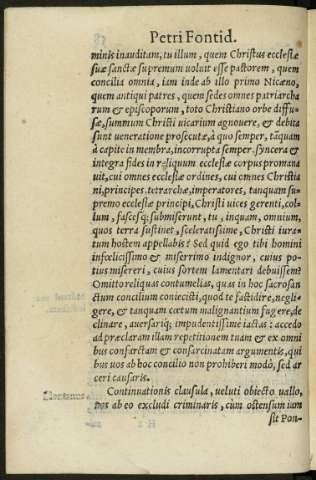 Petri Fontid.
minis inauditam, tu illum, quem Christus ecclesiæ
suæ sanctæ supremum uoluit esse pastorem, quem
concilia omnia, iam inde ab illo primo Nicæno,
quem antiqui patres, quem sedes omnes patriarcha
rum & episcoporum, toto Christiano orbe diffu-
sæ, summum Christi uicarium agnouere, & debita
sunt ueneratione prosecutæ, à quo semper, tãquam
à capite in membra, incorrupta semper syncera &
integra fides in reliquum ecclesiæ corpus promana
uit, cui omnes ecclesiæ ordines, cui omnes Christia
ni, principes, tetrarchæ, imperatores, tanquam su-
premo ecclesiæ principi, Christi uices gerenti, col-
lum, fascesq; submiserunt, tu, inquam, omnium,
quos terra sustinet, sceleratissime, Christi iura-
tum hostem appellabis? Sed quid ego tibi homini
infœlicissimo & miserrimo indignor, cuius po-
tius misereri, cuius sortem lamentari debuissem?
Omitto reliquas contumelias, quas in hoc sacrosan
ctum concilium coniecisti, quod te fastidire, negli-
gere, & tanquam cœtum malignantium fugere, de
clinare, auersariq; impudentissimè iactas: accedo
ad præclaram illam repetitionem tuam & ex omni
bus confarctam & confarcinatam argumentis, qui
bus uos ab hoc concilio non prohiberi modò, sed ar
ceri causaris.
Continuationis clausula, ueluti obiecto uallo,
uos ab eo excludi criminaris, cùm ostensum iam
sit Pon-